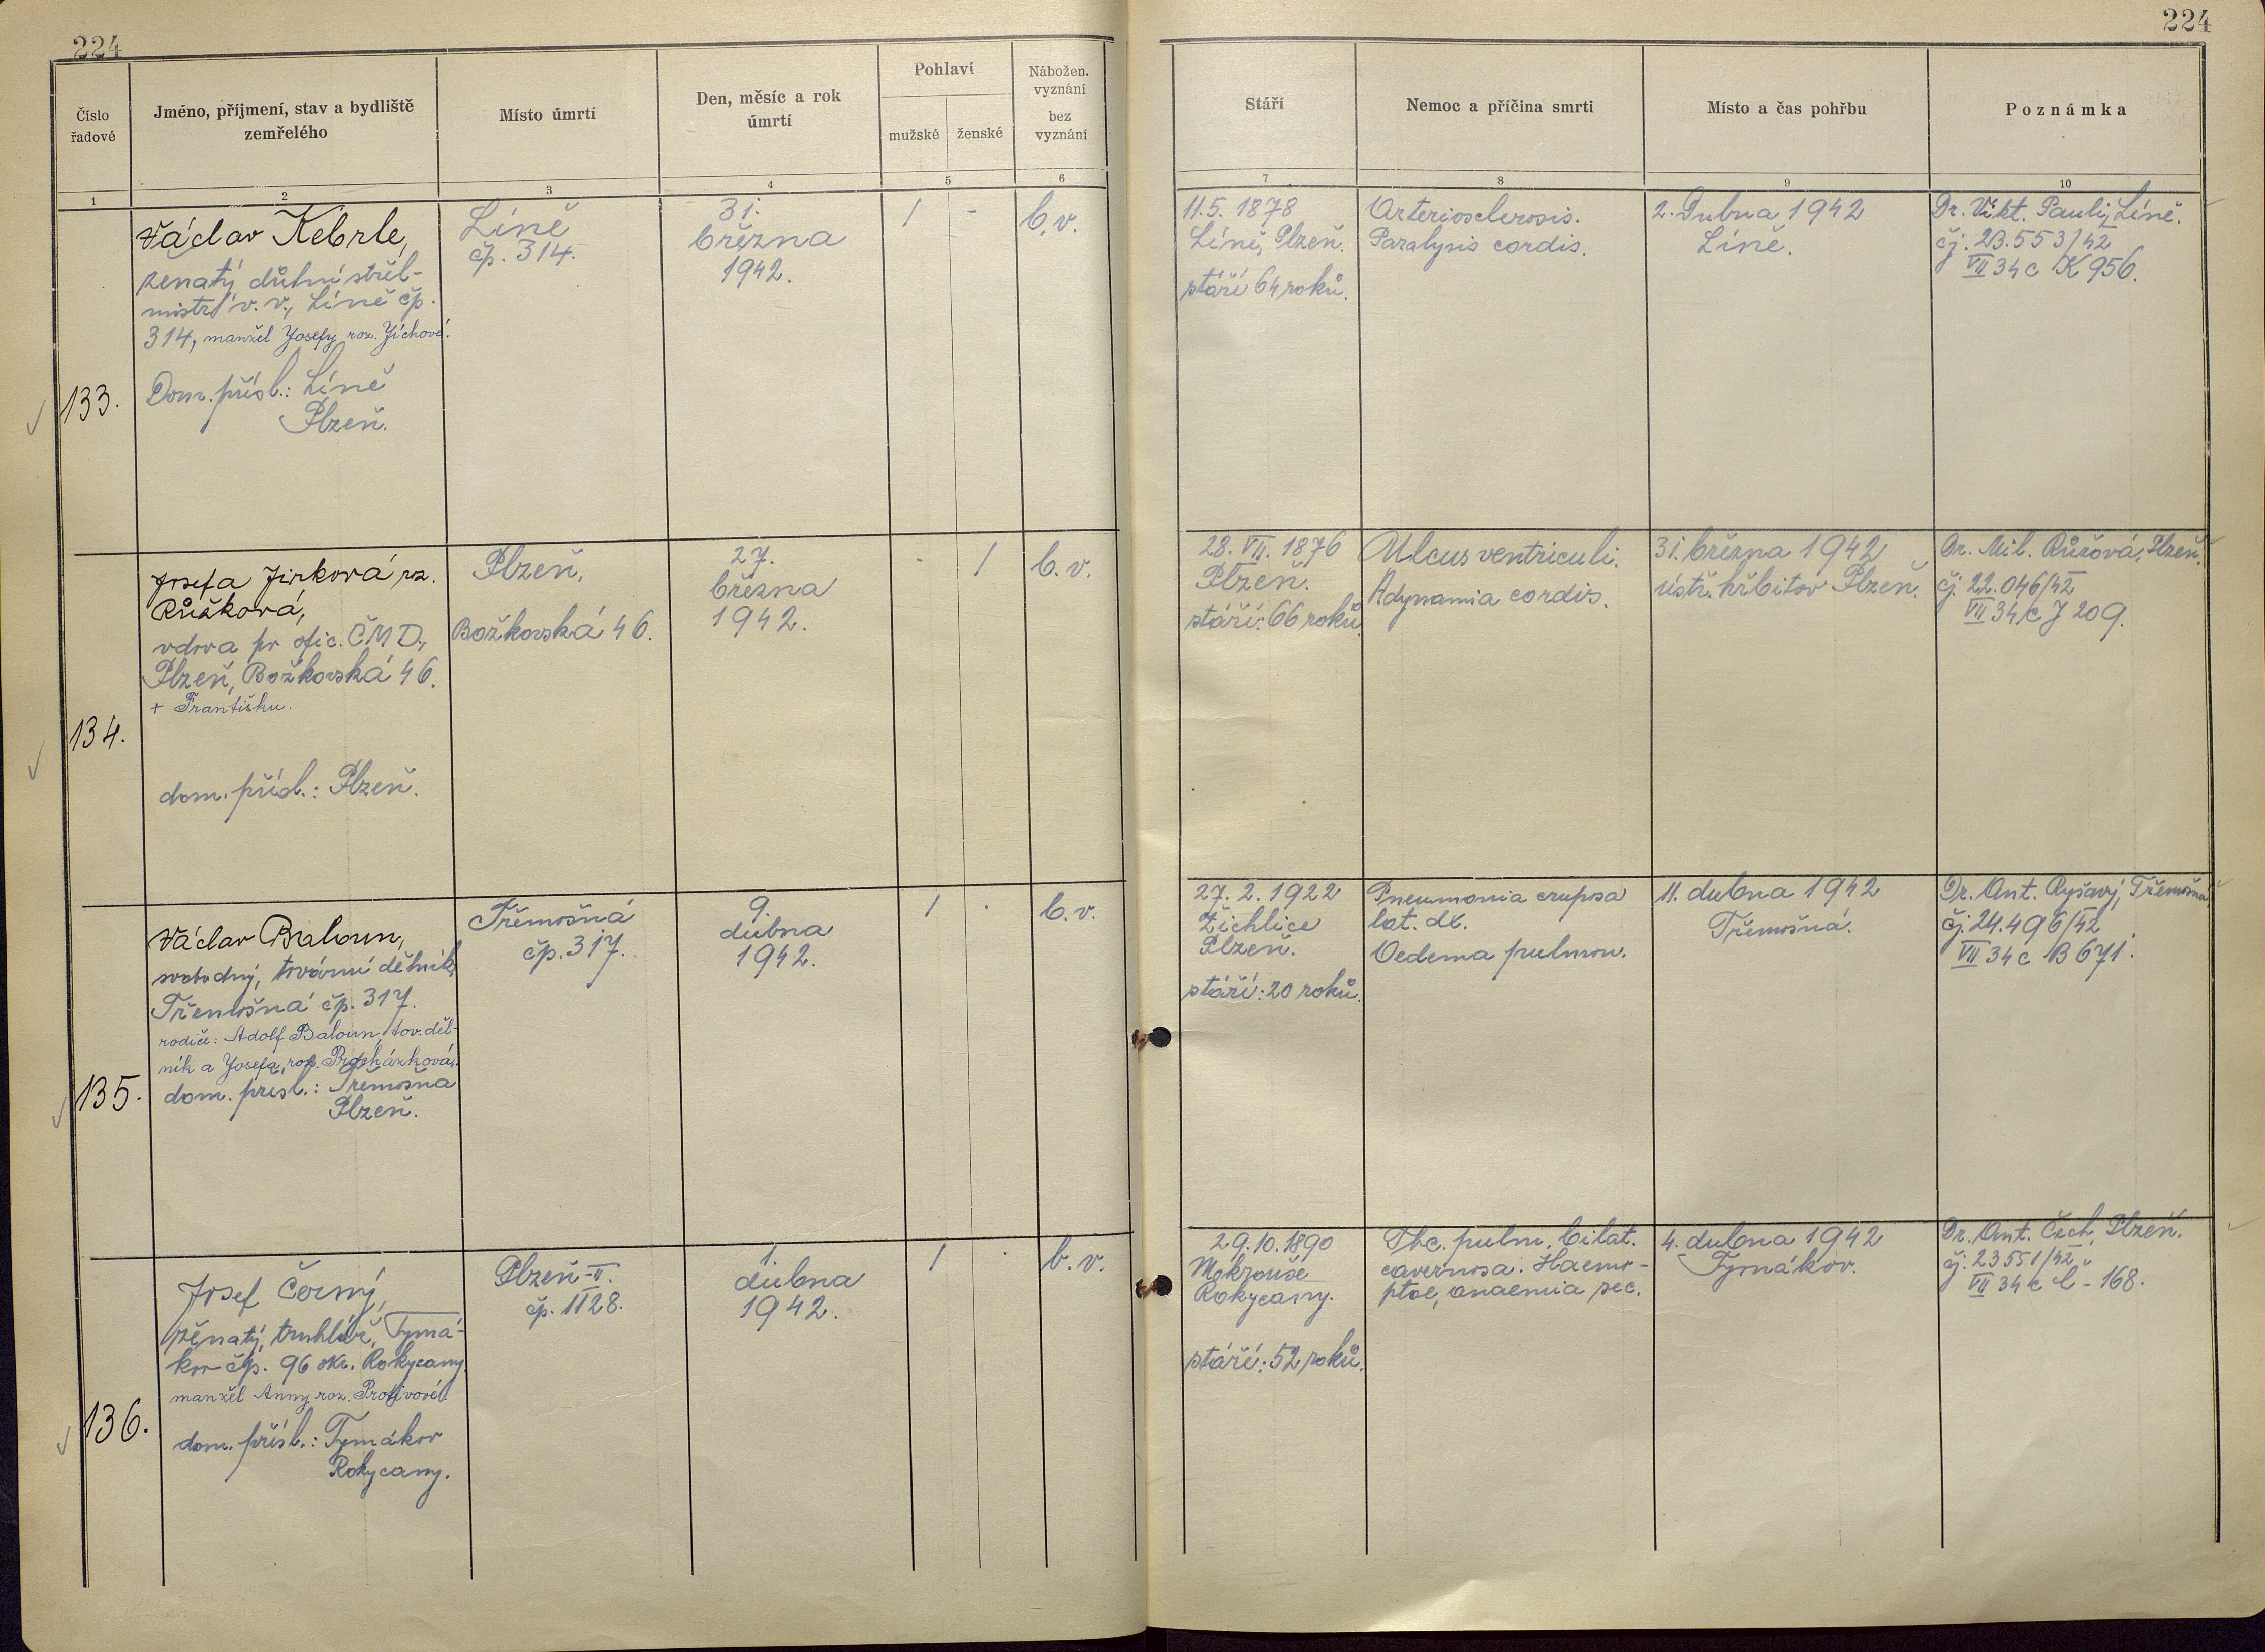 224
224
Číslo řadové
Jméno, příjmení, stav a bydliště zemřelého
Místo úmrtí
Den, měsíc a rok úmrtí
Pohlaví
mužské
ženské
Nábožen. vyznání
bez vyznání
Stáří
Nemoc a příčina smrti
Místo a čas pohřbu
Poznámka
1
2
3
4
5
6
7
8
9
10
133.
Václav Kebrle,
ženatý důlní střel-
mistr v. v., Líně čp.
314, manžel Josefy roz. Jíchové.
Dom. přísl.: Líně
Plzeň.
Líně
čp. 314.
31.
března
1942.
1
-
b.v.
11.5. 1878
Líně, Plzeň.
stáří 64 roků.
Arteriosclerosis.
Paralysis cordis.
2. Dubna 1942
Líně.
Dr. Vikt. Pauli, Líně.
čj. 23.553/42
VII 34c K 956.
134.
Josefa Jirková rz.
Růžková,
vdova po ofic. ČMD.,
Plzeň, Božkovská 46.
+ Františku.
dom. přísl.: Plzeň.
Plzeň,
Božkovská 46.
27.
března
1942.
-
1
b.v.
28. VII. 1876
Plzeň.
stáří: 66 roků
Ulcus ventriculi.
Adynamia cordis.
31. března 1942
ústř. hřbitov Plzeň.
Dr. Mil. Růžová, Plzeň.
čj. 22.046/42
VII 34c J 209.
135.
Václav Baloun,
svobodný, tovární dělník,
Třemošná čp. 317.
rodiče: Adolf Baloun, tov. děl-
ník a Josefa, roz. Procházková.
dom. přísl.: Třemošná
Plzeň.
Třemošná
čp. 317.
9.
dubna
1942.
1
-
b.v.
27. 2. 1922
Žichlice
Plzeň.
stáří: 20 roků.
Pneumonia cruposa
lat. dx.
Oedema pulmon.
11. dubna 1942
Třemošná.
Dr. Ant. Ryšavý, Třemošná
čj. 24.496/42
VII 34c B 671.
136.
Josef Černý,
ženatý, truhlář, Tymá-
kov čp. 96 okr. Rokycany.
manžel Anny roz. Protivové.
dom. přísl.: Tymákov
Rokycany.
Plzeň-II.
čp. 1128.
1.
dubna
1942.
1
-
b.v.
29.10.1890
Mokrouše
Rokycany.
stáří: 52 roků.
Tbc. pulm. bilat.
cavernosa. Haemo-
ptoe, anaemia sec.
4. dubna 1942
Tymákov.
Dr. Ant. Čech, Plzeň.
čj. 23551/42
VII 34c C - 168.